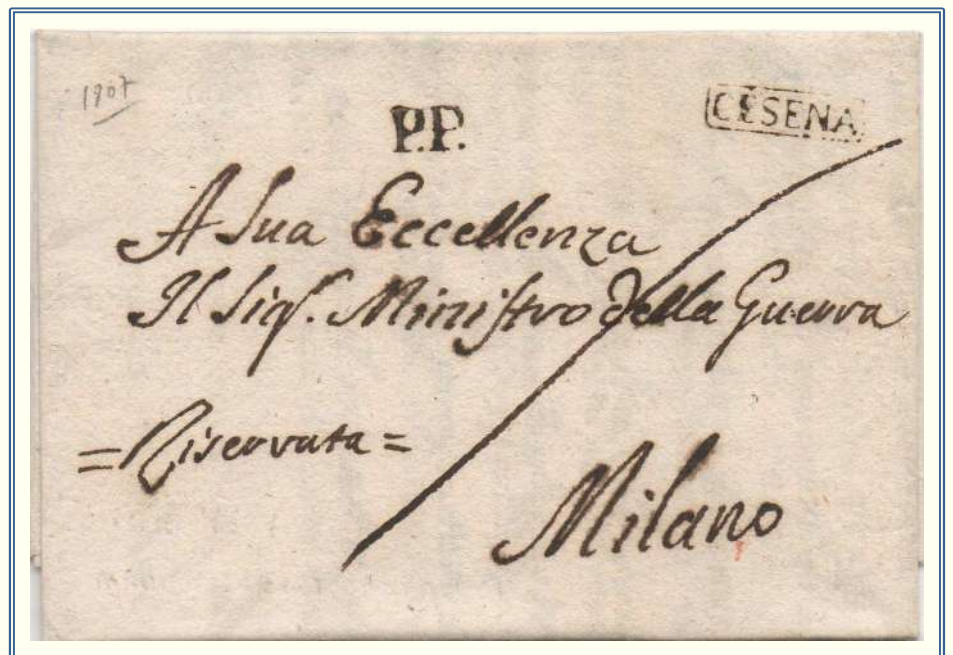 1907
P.P.
CESENA
A Sua Eccellenza
Il Sig.r Miniſtro della Guerra
=Riservata=
Milano